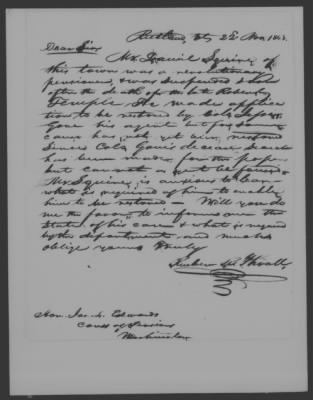 Rutland, Vt, 22 Nov.
Dear Sir
Mr. Daniel Squire, of
this town was a revolutionary
pensioner, & was suspended &
after the death of the late Robert
Temple He made applica
tion to be restored by
his agent but for
cause has not yet been restored
Since Cols decease search
has been made for the papers
but cannot as yet be found &
Mr Squire is anxious to learn
what is required of him to enable
him to be restored — Will you do
me the favor to inform me the
State of his case & what is required
by the department and much
oblige yours truly
Reuben R. Thrall
Hon. Jas. L. Edwards
Comr of Pensions
Washington